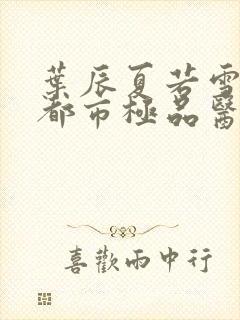 葉辰夏若雪
都市極品醫
喜歡雨中行